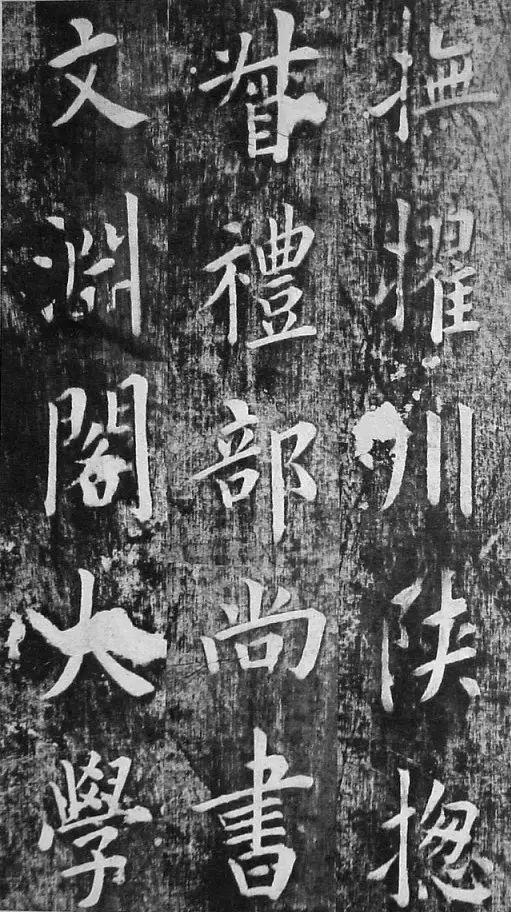 撫擢川陕揔
督禮部尚書
文淵閣大學